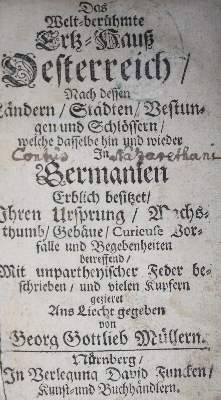 Das
Welt-berühmte
Ertz-Hauß
Oesterreich/
Nach dessen
Ländern/Städten/Vestun-
gen und Schlössern/
welche dasselbe hin und wieder
In
Germanien
Erblich besitzet/
Ihren Ursprung/Wachs-
thumb/Gebäue/Curieuse Vor-
fälle und Begebenheiten
betreffend/
Mit unpartheyischer Feder be-
schrieben/und vielen Kupfern
gezieret
Ans Liecht gegeben
von
Georg Gottlieb Müllern.
Nürnberg/
In Verlegung David Funcken/
Kunst-und Buchhändlern.